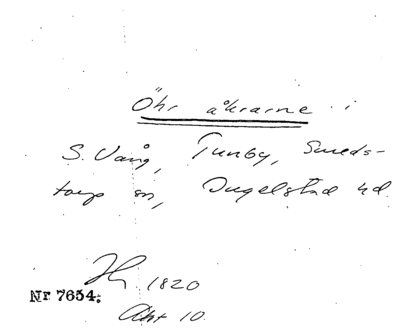 Öhr åkrarne i
S. Vång, Tunby, Smeds-
torps sn, Ingelstad hd.
1820
Nr 7654.
Akt 10.